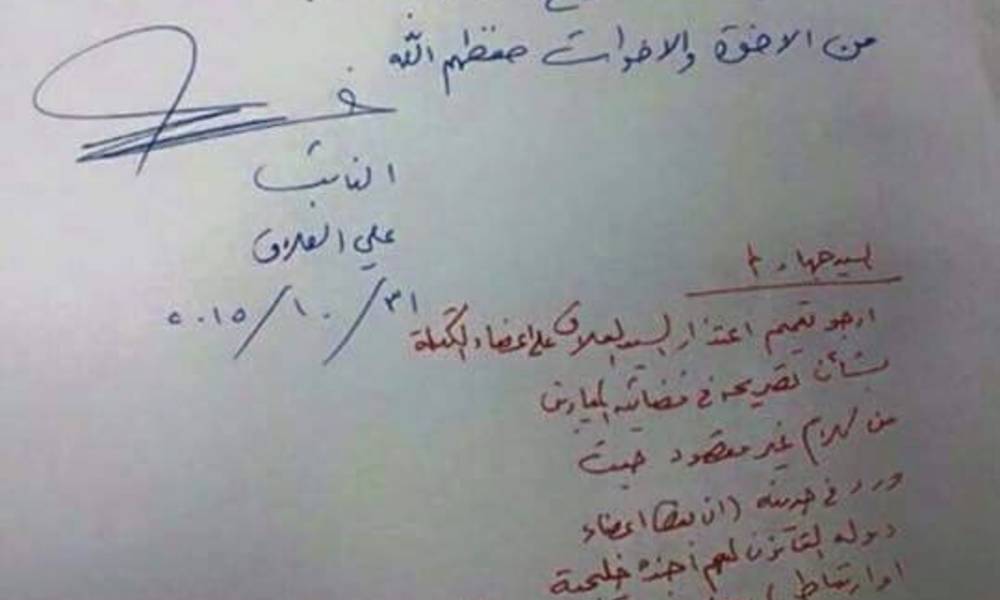 من الاخوة والاخوات حفظهم الله
النائب
علي العلاق
٣١/١٠/٢٠١٥
السيد جهاد
ارجو تعميم اعتذار السيد العلاق على اعضاء الكتلة
بشأن تصريحه في فضائية
من كلام غير مقصود حيث
ورد في حديثه (ان بعض اعضاء
دولة القانون لهم أجندة خليجية
او ارتباط